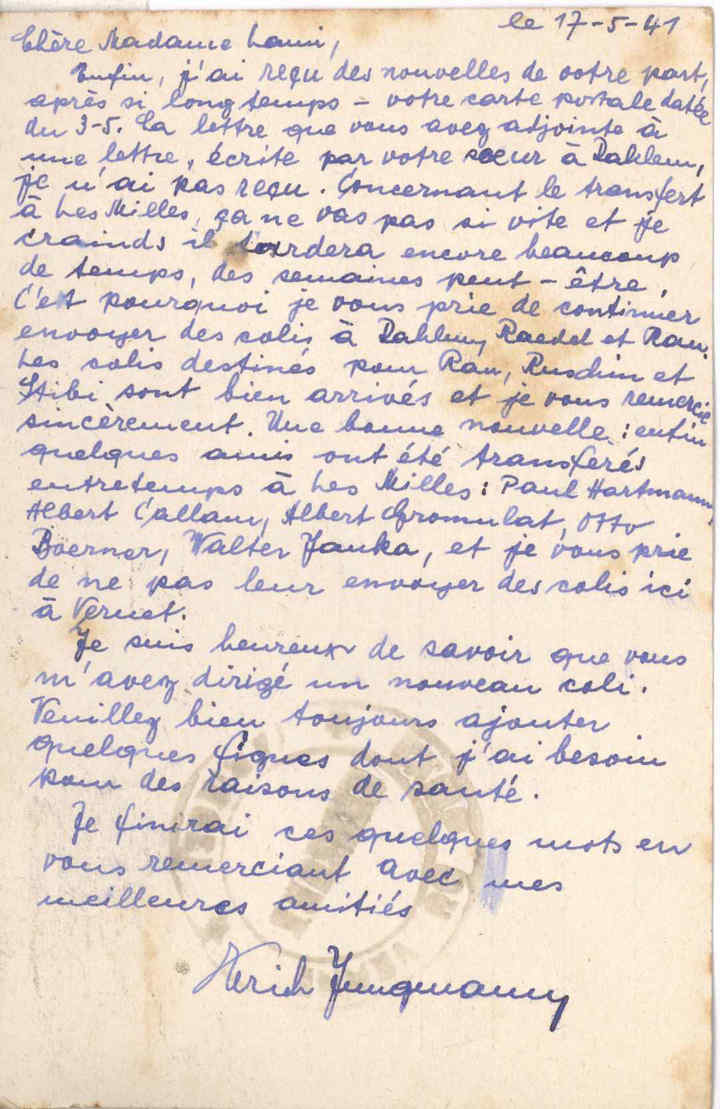 le 17-5-41
Chère Madame Lanni,
Enfin, j'ai reçu des nouvelles de votre part,
après si longtemps – votre carte postale datée
du 3-5. La lettre que vous avez adjointe à
une lettre, écrite par votre sœur à Dahlem,
je n'ai pas reçu. Concernant le transfert
à Les Milles, ça ne vas pas si vite et je
crainds il tardera encore beaucoup
de temps, des semaines peut-être.
C'est pourquoi je vous prie de continuer
envoyer des colis à Dahlem, Raedel et Rau.
Les colis destinés pour Rau, Ruschin et
Stibi sont bien arrivés et je vous remercie
sincèrement. Une bonne nouvelle: enfin
quelques amis ont été transferés
entretemps à Les Milles: Paul Hartmann,
Albert Callam, Albert Gromulat, Otto
Boerner, Walter Janka, et je vous prie
de ne pas leur envoyer des colis ici
à Vernet.
Je suis heureux de savoir que vous
m'avez dirigé un nouveau coli.
Veuillez bien toujours ajouter
quelques figues dont j'ai besoin
pour des raisons de santé.
Je finirai ces quelques mots en
vous remerciant avec mes
meilleures amitiés
Herich Jungmann